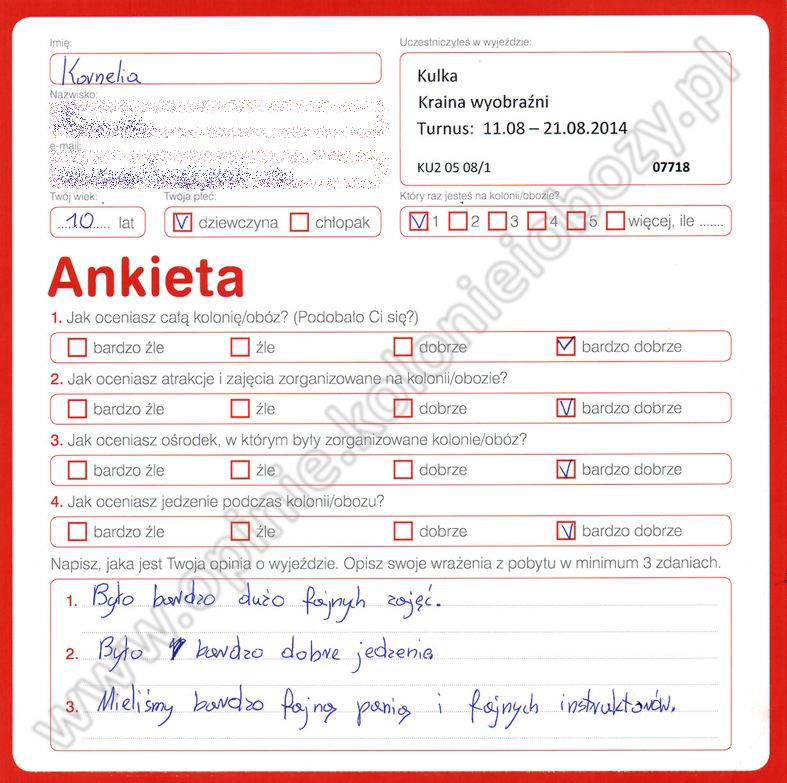 Imię:
Kornelia
Nazwisko:
e-mail:
Uczestniczyłeś w wyjeździe:
Kulka
Kraina wyobraźni
Turnus: 11.08 – 21.08.2014
KU2 05 08/1 07718
Twój wiek: Twoja płeć: Który raz jesteś na kolonii/obozie?
10 lat dziewczyna chłopak 1 2 3 4 5 więcej, ile .......
Ankieta
1. Jak oceniasz całą kolonię/obóz? (Podobało Ci się?)
bardzo źle źle dobrze bardzo dobrze
2. Jak oceniasz atrakcje i zajęcia zorganizowane na kolonii/obozie?
bardzo źle źle dobrze bardzo dobrze
3. Jak oceniasz ośrodek, w którym były zorganizowane kolonie/obóz?
bardzo źle źle dobrze bardzo dobrze
4. Jak oceniasz jedzenie podczas kolonii/obozu?
bardzo źle źle dobrze bardzo dobrze
Napisz, jaka jest Twoja opinia o wyjeździe. Opisz swoje wrażenia z pobytu w minimum 3 zdaniach.
1. Było bardzo dużo fajnych zajęć.
2. Było bardzo dobre jedzenia
3. Mieliśmy bardzo fajną panią i fajnych instruktorów.
www.opinie.kolonieiobozy.pl